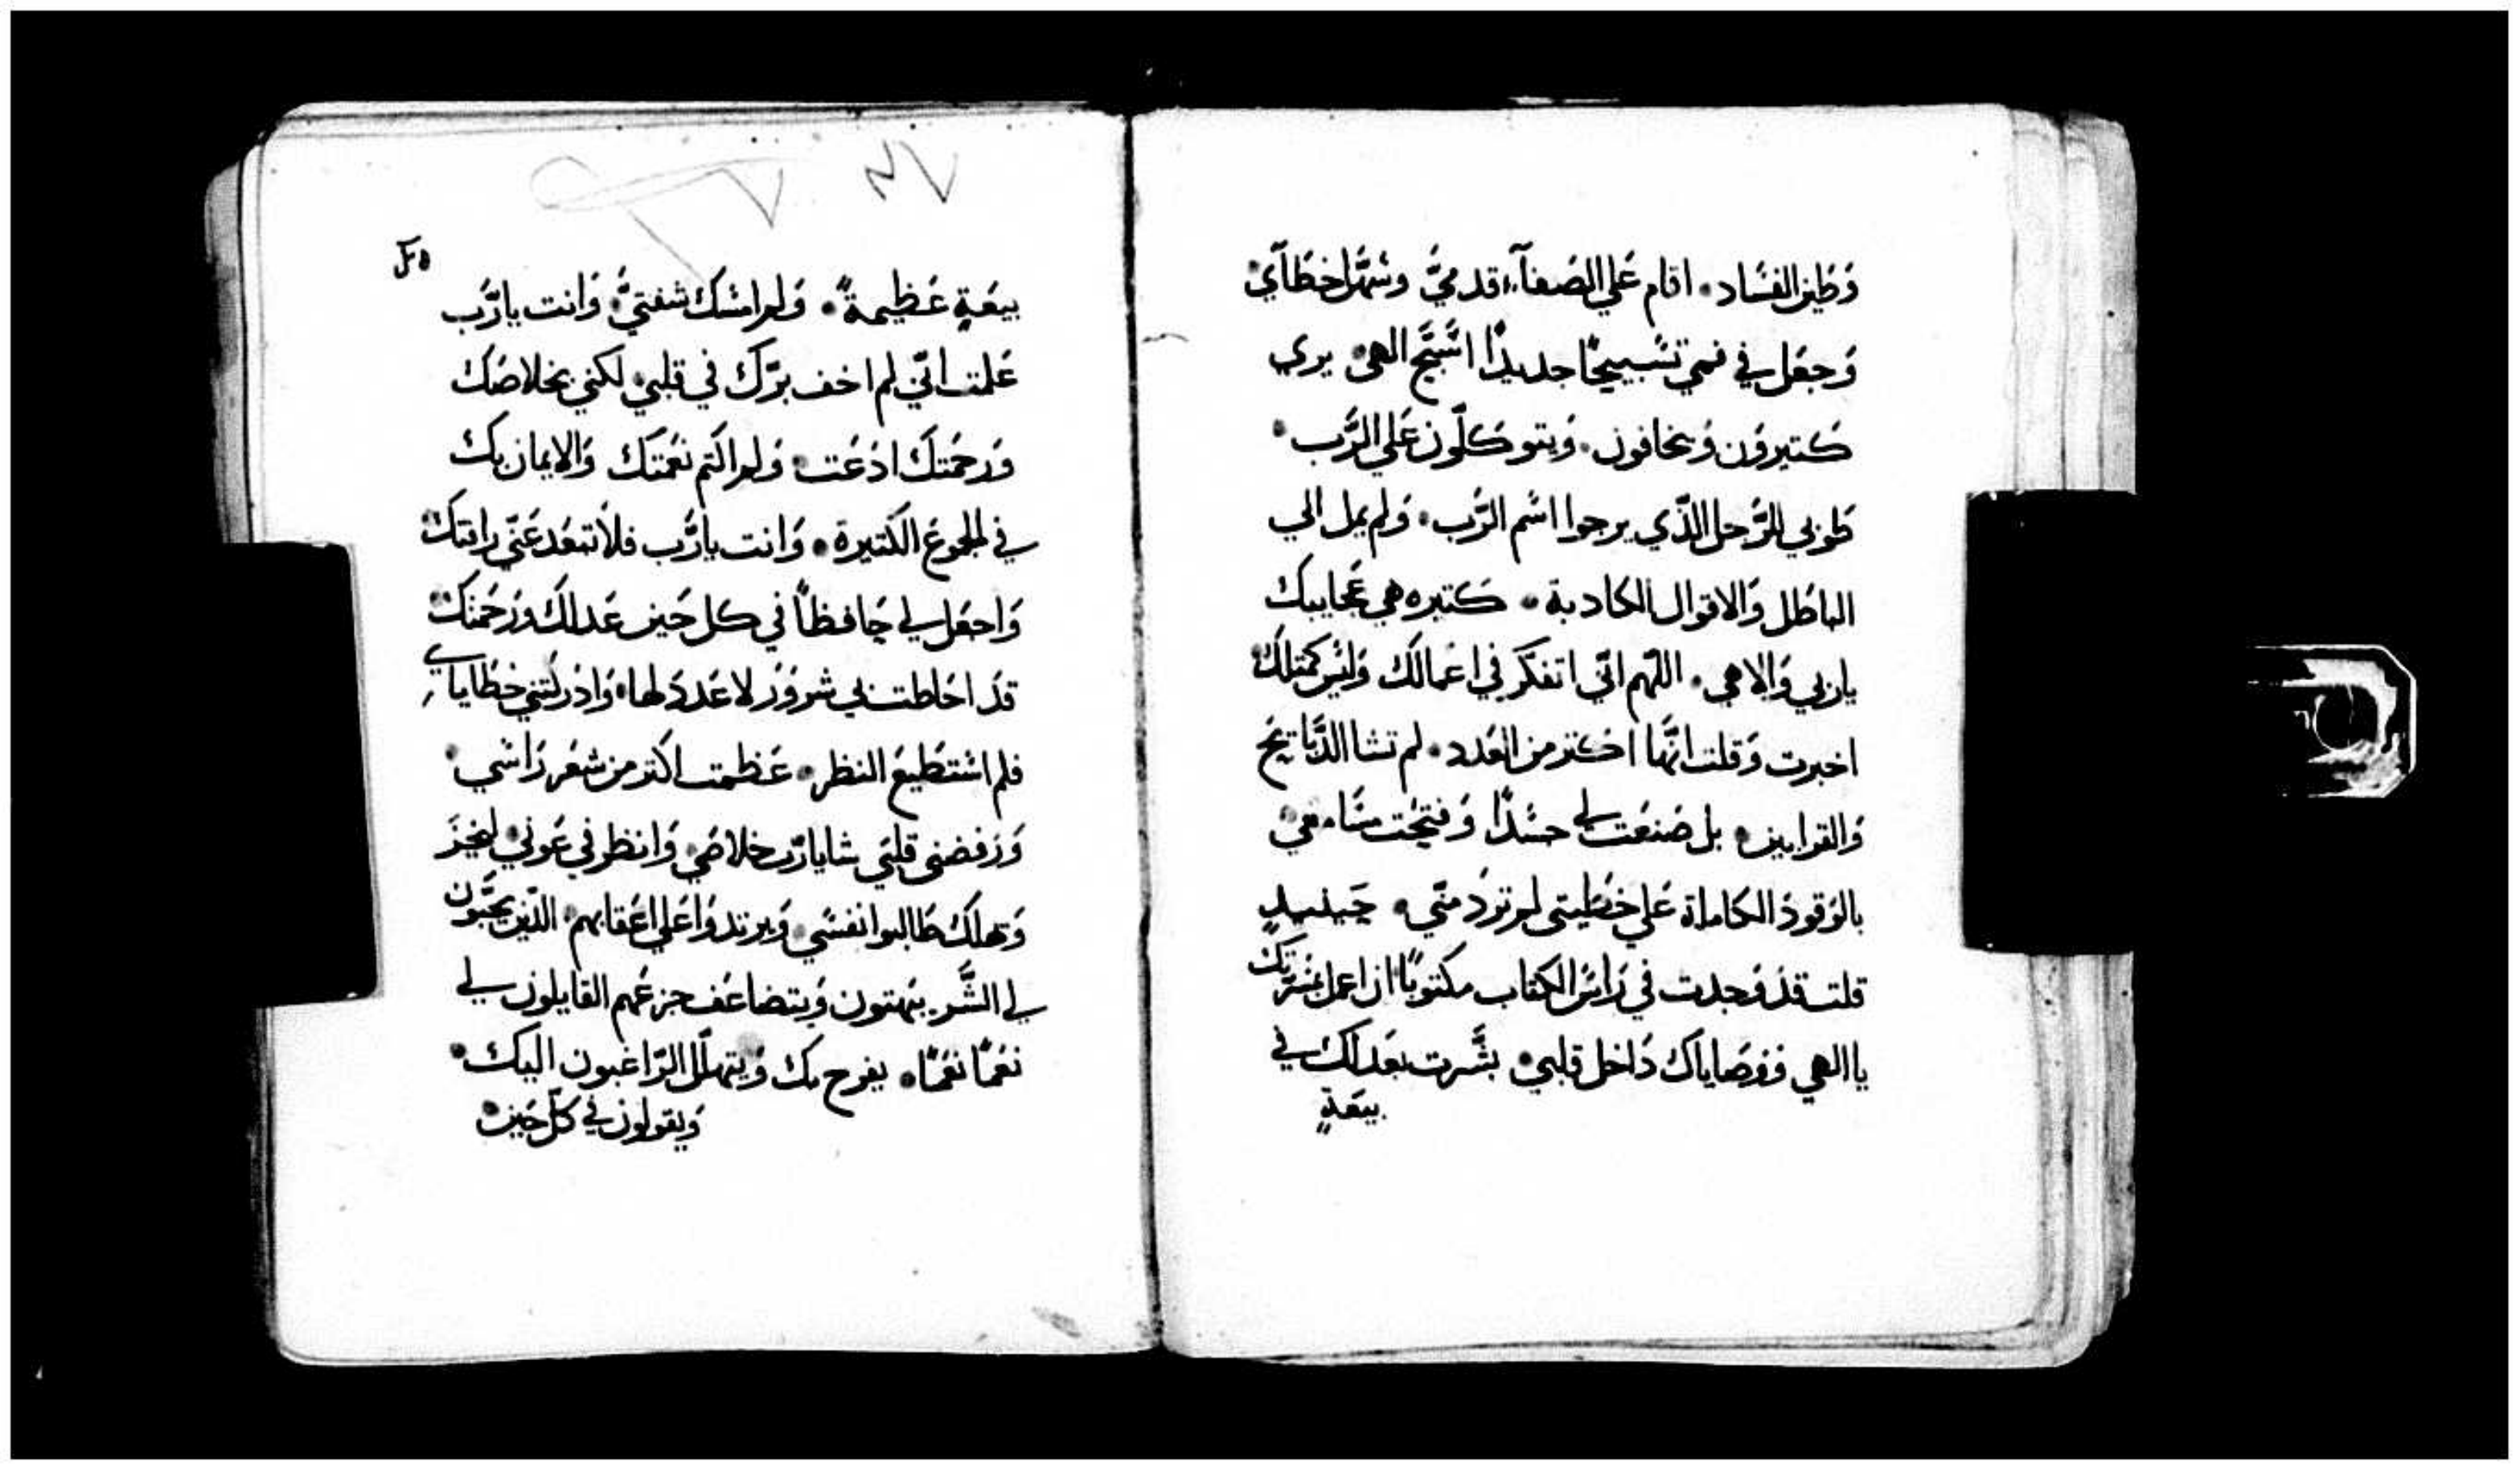 وَطين الفسَاد • اقام عَلي الصَفآء قدميَّ وسَهَّل خطآي
وَجعَل في فمي تسَبيحًا جديدًا اسَبّح الهي • يري
كتيروُن وُيخافون • وَيتوكلّون عَلي الرَّب •
طوبي للرَّجل الذّي يرجوا اسَم الرَّب • وَلم يمل الي
الباطل وَالاقوال الكادبة • كتيره هي عَجايبك
يا ربي وَالاهي • اللّهم انّي اتفكّر في اعَمالك وَليس كمتلك
اخبرت وَقلت انَّها اكتر من العَدد • لم تشا الدَّبايَح
وَالقرابين • بل صَنعَت لي جسَدًا وَفتحت مسَامعي
بالوَقودَ الكاملة عَلي خطيتي لم ترد منّي • حَينيدٍ
قلت قد وَجدت في رَاسَ الكتاب مكتوبًا ان اعمل بمسَرّتك
يا الهي وَوَصاياك دَاخل قلبي • بشَّرت بعَدلك في
بيعَةٍ
٣٥
بيعَةٍ عَظيمةً • وَلم امسَك شفتيَّ • وَانت يا رَّب
عَلمت انّي لم اخف برَّك في قلبي • لكني بخلاصَك
وَرحَمتك ادعَت • وَلم اكتم نعَمتك وَالايمان بك
في الجموعَ الكتيرة • وَانت يا رَّب فلا تبعَد عَنّي رافتك
وَاجعَل لي حَافظاً في كل حَين عَدلك وَرَحَمتك
قدَ احَاطت بي شروَرَ لا عَددَ لها • وَادرَكتني خطاياي
فلم اسَتطيعَ النظر • عَظمت اكتر من شعَر رَاسَي •
وَرَفضني قلبَي شا يا رَّب خلاصَي • وَانظر في عَوني ليخَزَ
وَتهلك طالبوا نفسَي • وَيرتدوَا عَلي اعَقابهم • الذّين يحبّون
لي الشَّر يبَهتون وَيتضاعَف جزعَهم القايلون لي
نعَمًا نعَمًا • يفرح بك وَيتهلّل الرّاغَبون اليك •
وَيقولون في كلّ حَين •